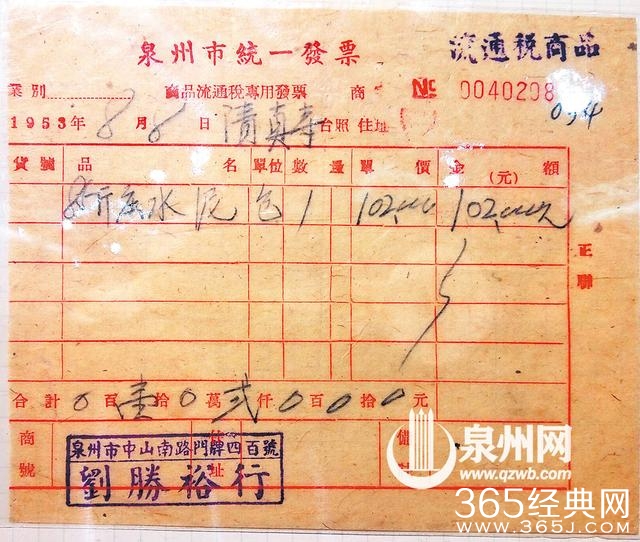 泉州市統一發票
流通税商品
業别
商品流通税專用發票
商
№ 0040208
094
1953年 8 月 8 日
台照
住址
貨號 品名 單位 數量 單價 金額(元)
水泥 包 1 102,000 102,000
正聯
合計 0 百 壹 拾 0 萬 貳 仟 0 百 0 拾 0 元
商號
住址
泉州市中山南路門牌四百號
劉勝裕行
泉州网
www.qzwb.com
365经典网
www.365J.com